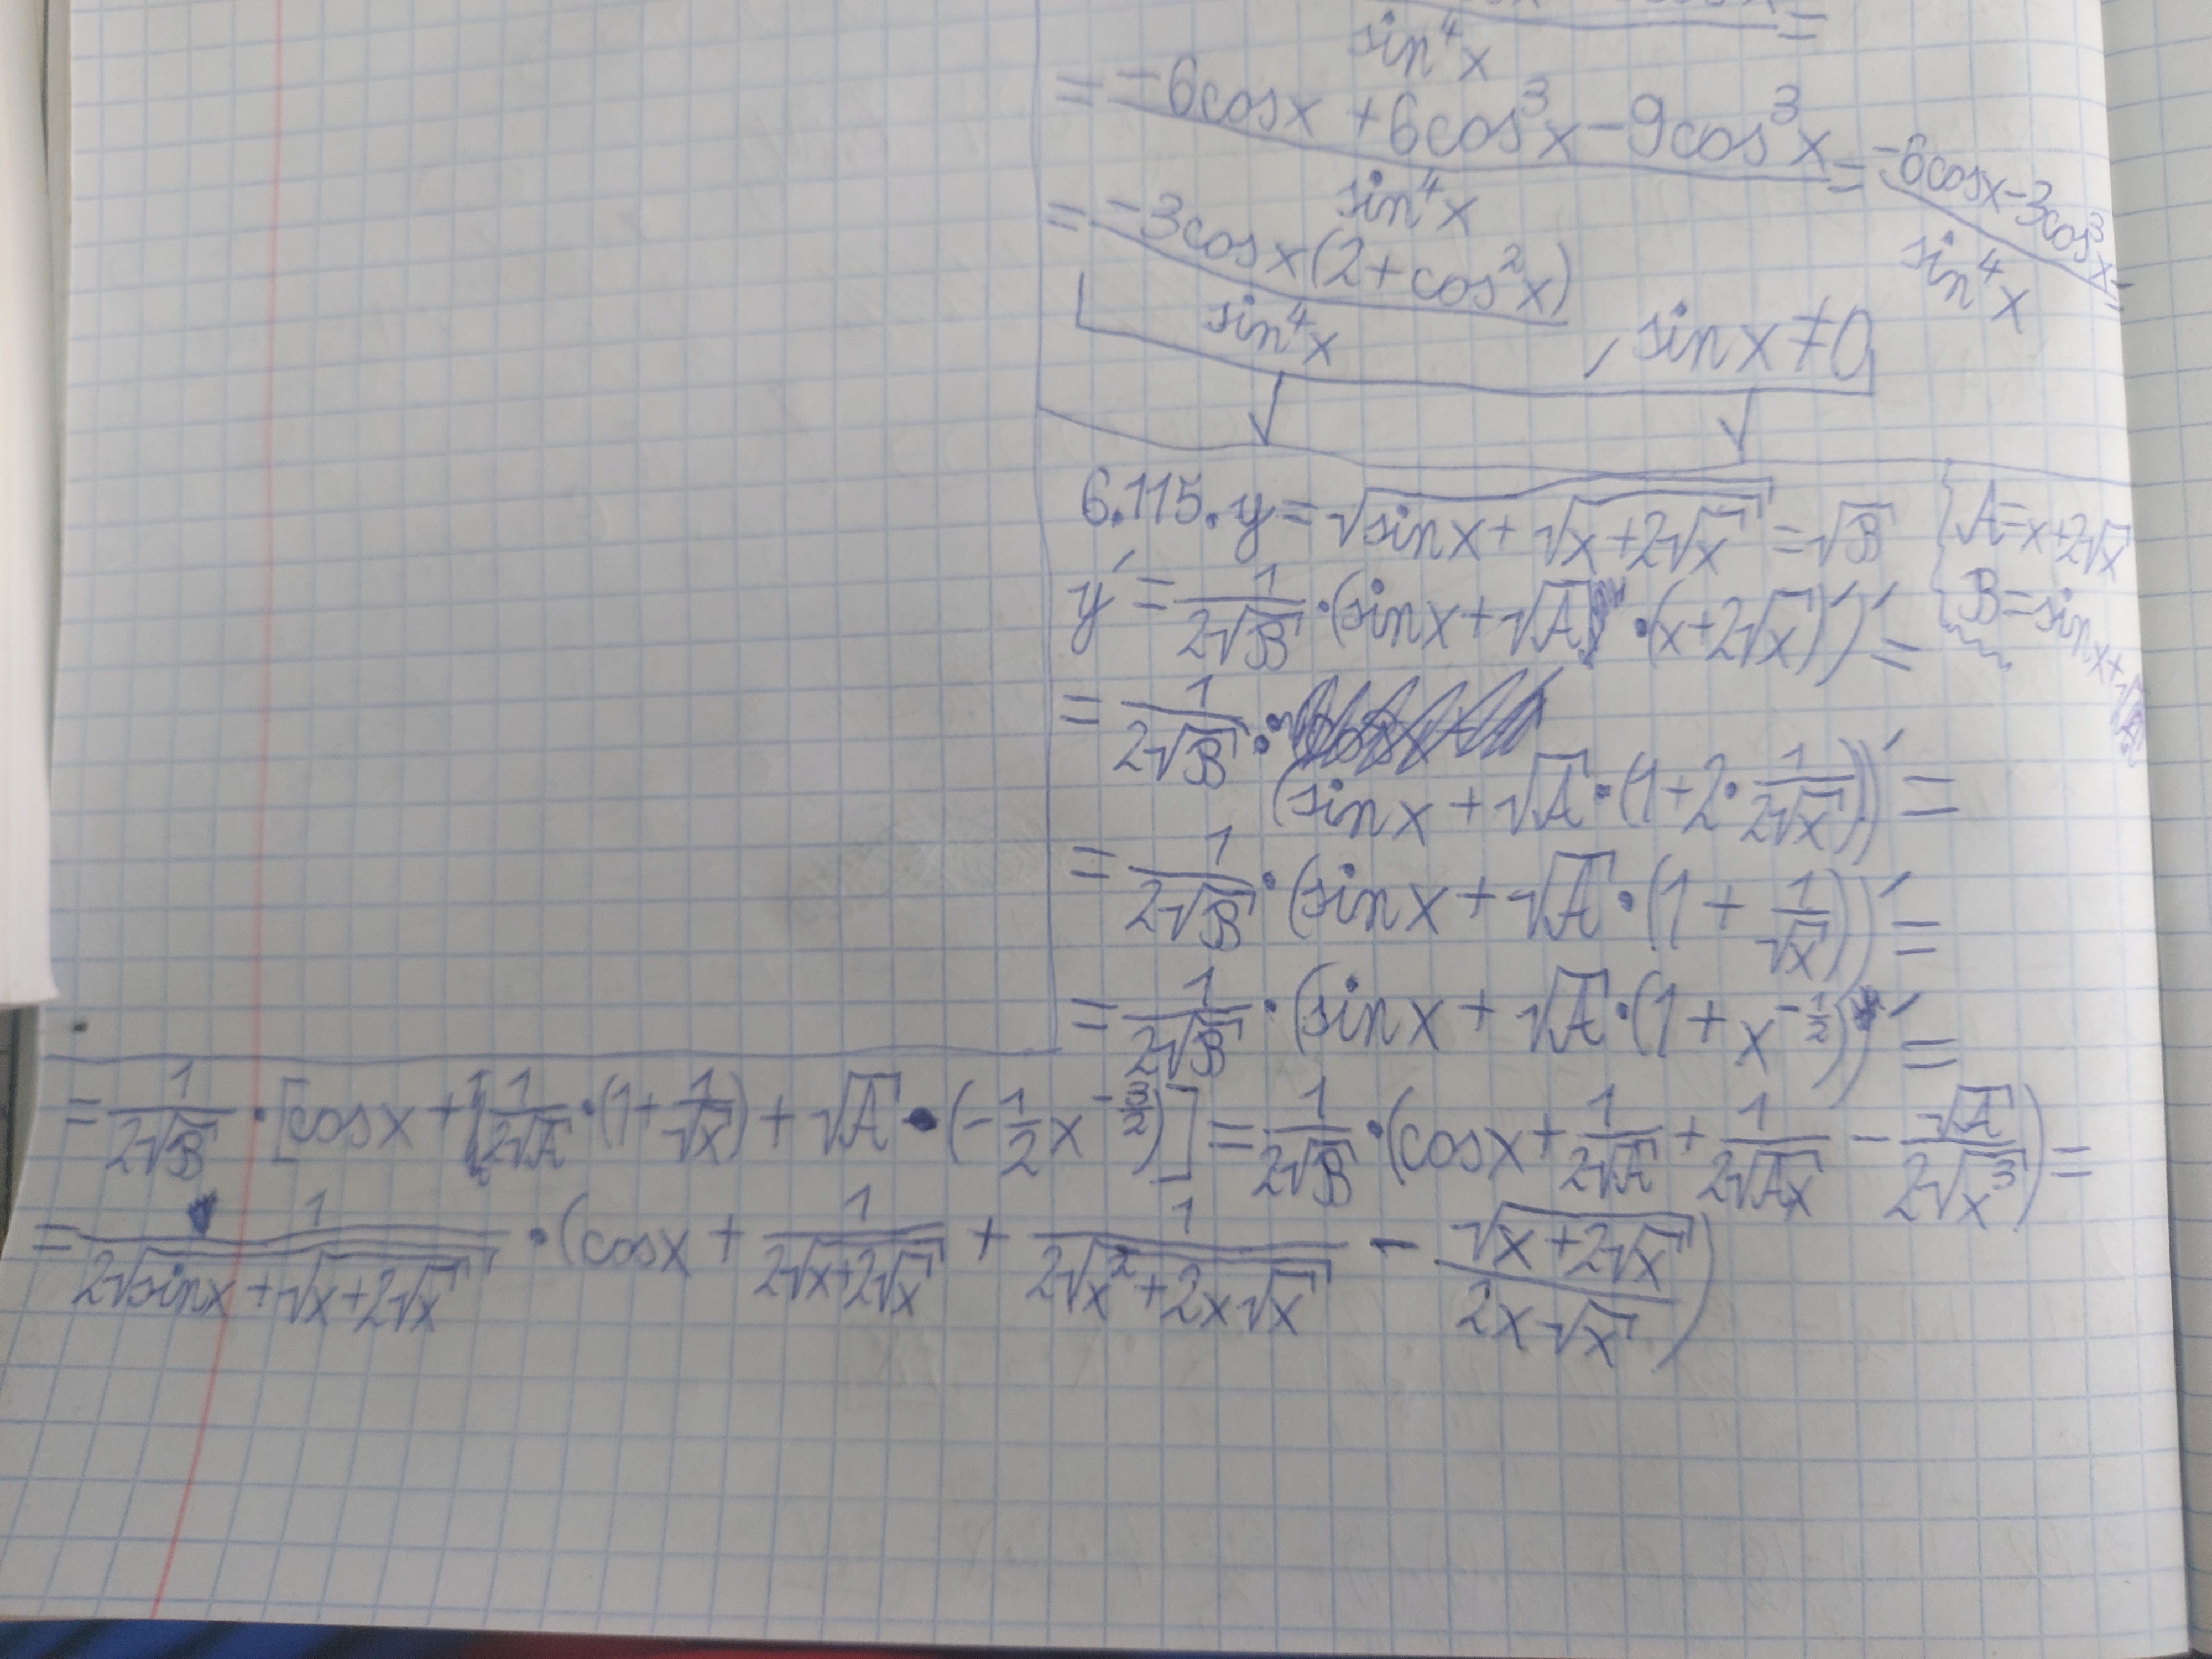 sin⁴x =
= (-6cosx + 6cos³x - 9cos³x)/(sin⁴x) = (-6cosx - 3cos³x)/(sin⁴x) =
= (-3cosx(2+cos²x))/(sin⁴x), sinx ≠ 0
6.115. y = √(sinx + √(x+2√x)) = √B
A = x+2√x
B = sinx+√A
y' = 1/(2√B) · (sinx + √A · (x+2√x)')' =
= 1/(2√B) ·
(sinx + √A · (1+2·1/(2√x)))' =
= 1/(2√B) · (sinx + √A · (1 + 1/√x))' =
= 1/(2√B) · (sinx + √A · (1 + x^(-1/2)))' =
= 1/(2√B) · [cosx + 1/(2√A) · (1+1/√x) + √A · (-1/2 x^(-3/2))] = 1/(2√B) · (cosx + 1/(2√A) + 1/(2√(Ax)) - √A/(2√(x³))) =
= 1/(2√(sinx+√(x+2√x))) · (cosx + 1/(2√(x+2√x)) + 1/(2√(x²+2x√x)) - √(x+2√x)/(2x√x))